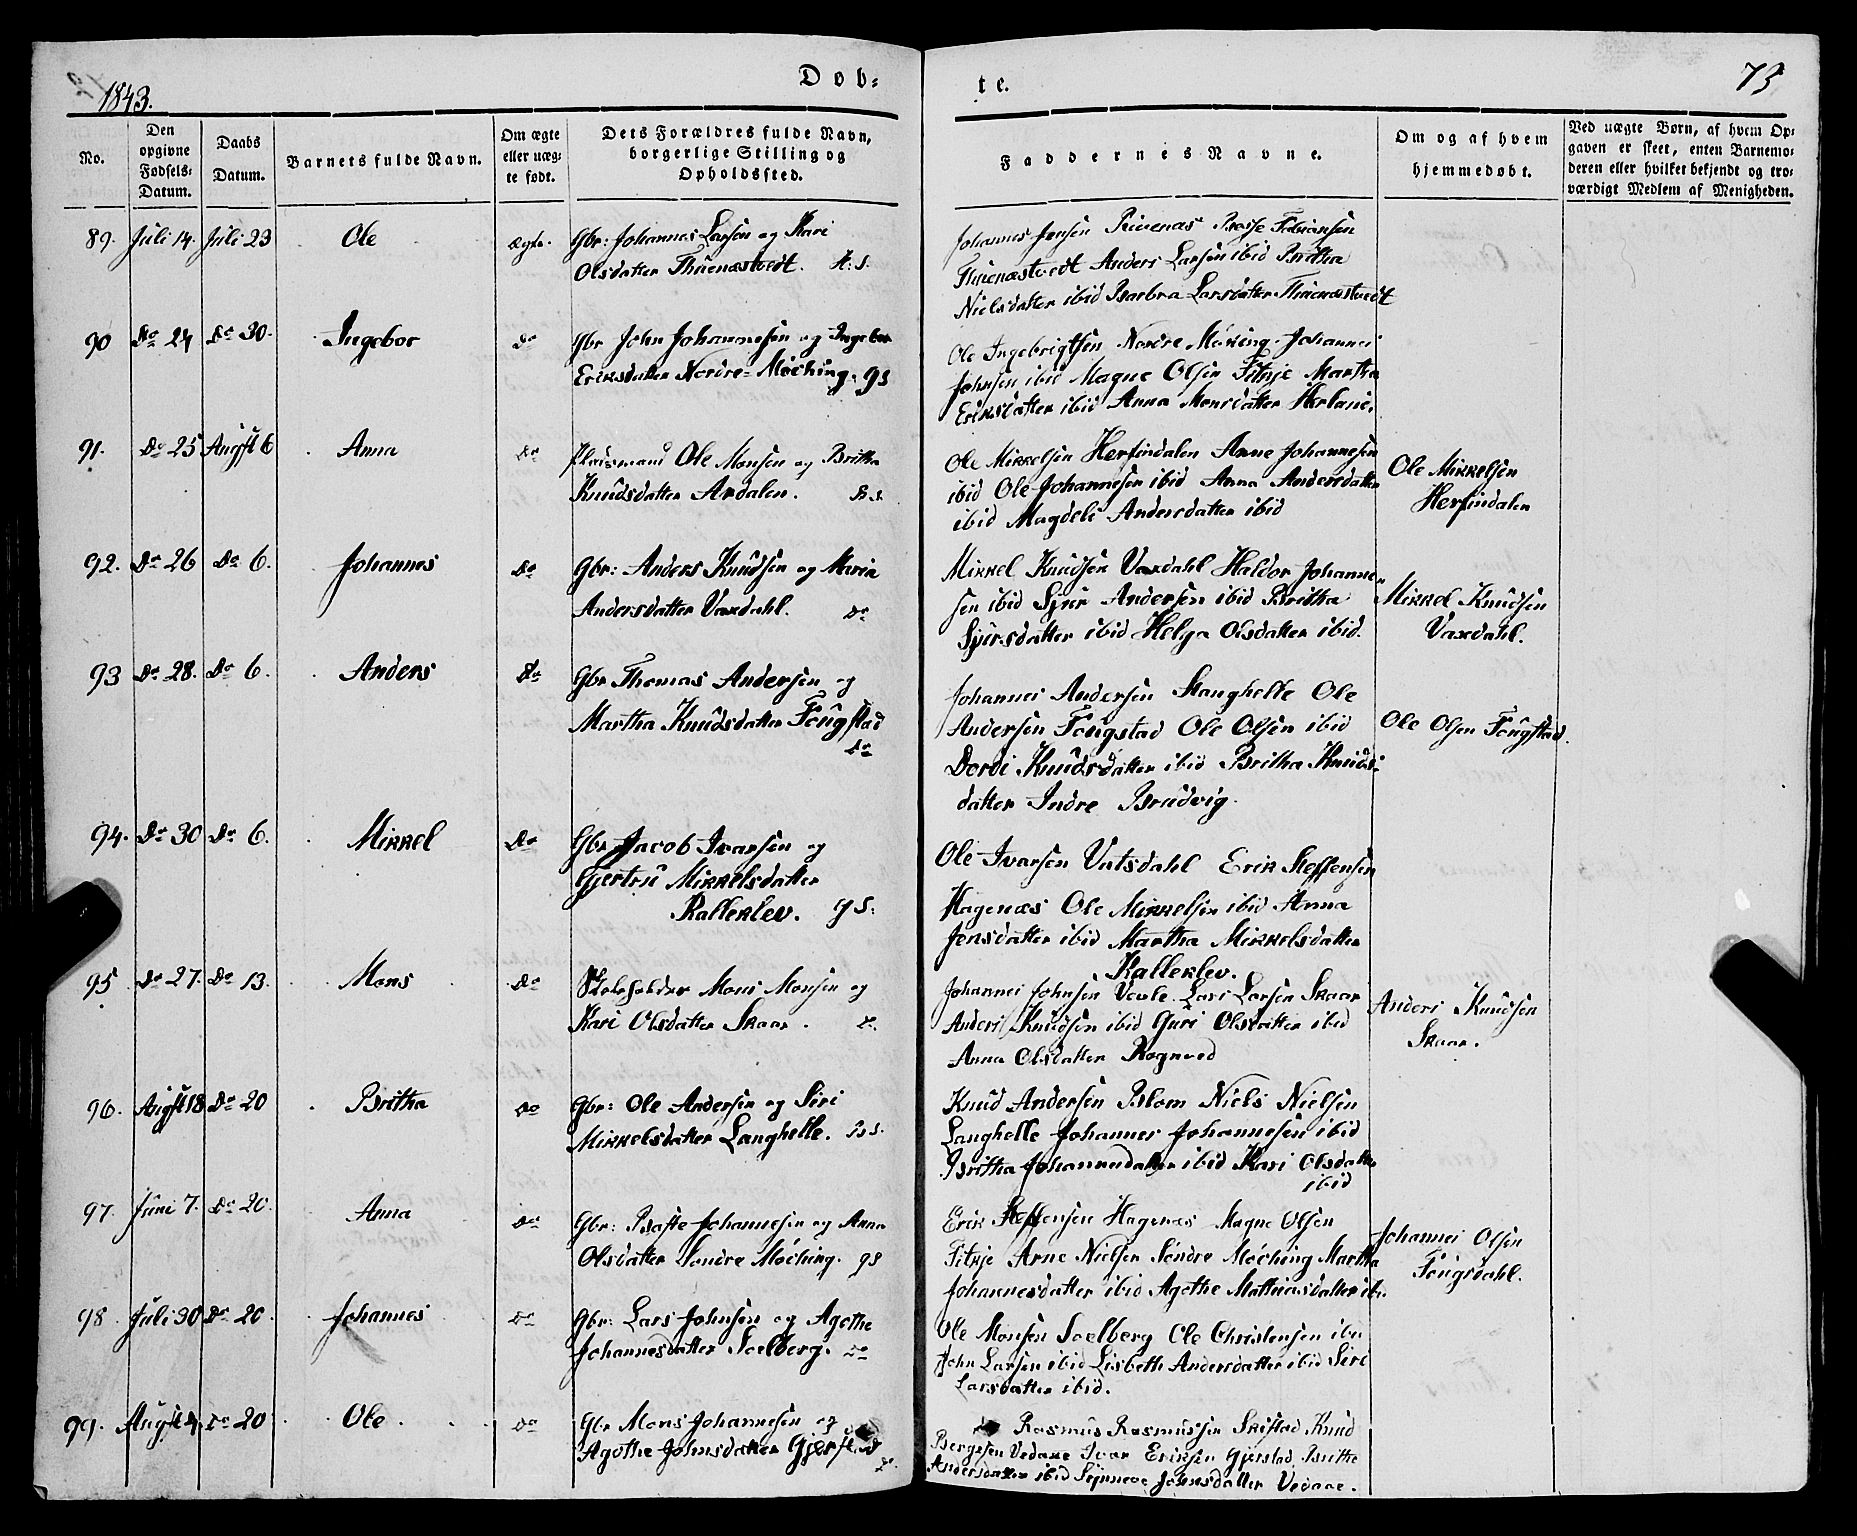 1843.
Døb=
te.
73
No.
Den opgivne Fødsels-Datum.
Daabs Datum.
Barnets fulde Navn.
Om ægte eller uæg-te født.
Dets Forældres fulde Navn, borgerlige Stilling og Opholdssted.
Faddernes Navne.
Om og af hvem hjemmedøbt.
Ved uægte Børn, af hvem Op-gaven er skeet, enten Barnemo-deren eller hvilket bekjendt og tro-værdigt Medlem af Menigheden.
89. Juli 14. Juli 23 Ole ægte. Gbr: Johannes Larsen og Kari
Olsdatter Thuenæstvedt. H.S.
Johannes Jensen
Thuenæstvedt Anders Larsen ibid Britha
Nielsdatter ibid Barbra Larsdatter Thuenæstvedt
90 Do 24 Do 30. Ingebor Do Gbr John Johannesen og Ingebor
Eriksdatter Nordre-Møching. gS
Ole Ingebrigtsen Nordre Møking Johannes
Johnsen ibid Magne Olsen Fitkje Martha
Eriksdatter ibid Anna Monsdatter Herland.
91. Do 25 Augst 6 Anna Do Plaismand Ole Monsen og Britha
Knudsdatter Ardalen. B.S.
Ole Mikkelsen Herfindalen Anne Johannesen
ibid Ole Johannesen ibid Anna Andersdatter
ibid Magdeli Andersdatter ibid
Ole Mikkelsen
Herfindalen
92. Do 26 Do 6. Johannes Do Gbr: Anders Knudsen og Maria
Andersdatter Vaxdahl. Do
Mikkel Knudsen Vaxdahl Haldor Johanne-
sen ibid Sjur Andersen ibid Britha
Sjursdatter ibid Helga Olsdatter ibid.
Mikkel Knudsen
Vaxdahl.
93 Do 28. Do 6. Anders Do Gbr Thomas Andersen og
Martha Knudsdatter Fougstad
Do
Johannes Andersen Stanghelle Ole
Andersen Fougstad Ole Olsen ibid
Dordi Knudsdatter ibid Britha Knuds-
datter Indre Brudvig.
Ole Olsen Fougstad.
94. Do 30 Do 6. Mikkel Do Gbr Jacob Ivarsen og
Gjertru Mikkelsdatter
Kalleklev. gS:
Ole Ivarsen Vatsdahl Erik Steffensen
Hagenæs Ole Mikkelsen ibid Anna
Jensdatter ibid Martha Mikkelsdatter
Kalleklev.
95 Do 27. Do 13. Mons Do Skoleholder Mons Monsen og
Kari Olsdatter Skaar.
Johannes Johnsen Lars Larsen Skaar
Anders Knudsen ibid Guri Olsdatter ibid
Anna Olsdatter
Anders Knudsen
Skaar.
96. Augst 18 Do 20 Britha Do Gbr: Ole Andersen og Siri
Mikkelsdatter Langhelle. BS.
Knud Andersen Blom Niels Nielsen
Langhelle Johannes Johannesen ibid
Britha Johannesdatter ibid Kari Olsdatter
ibid
97. Juni 7. Do 20. Anna Do Gbr: Basse Johannesen og Anna
Olsdatter Søndre Møching. gS
Erik Steffensen Hagenæs Magne Olsen
Fitkje Arne Nielsen Søndre Møching Martha
Johannesdatter ibid Agathe Mathiasdatter ib.
Johannes Olsen
Fougsdahl.
98. Juli 30 Do 20. Johannes Do Gbr: Lars Johnsen og Agathe
Johannesdatter Soelberg. Do
Ole Monsen Soelberg Ole Christensen ibid
John Larsen ibid Lisbeth Andersdatter ibid Siri
Larsdatter ibid.
99. Augst Do 20 Ole Do Gbr Mons Johannesen og
Agathe Johnsdatter Gjerstad
Rasmus Rasmussen Skiftad Knud
Bergesen Vedaae Ivar Eriksen Gjerstad Britha
Andersdatter ibid Synneve Johnsdatter Vedaae.